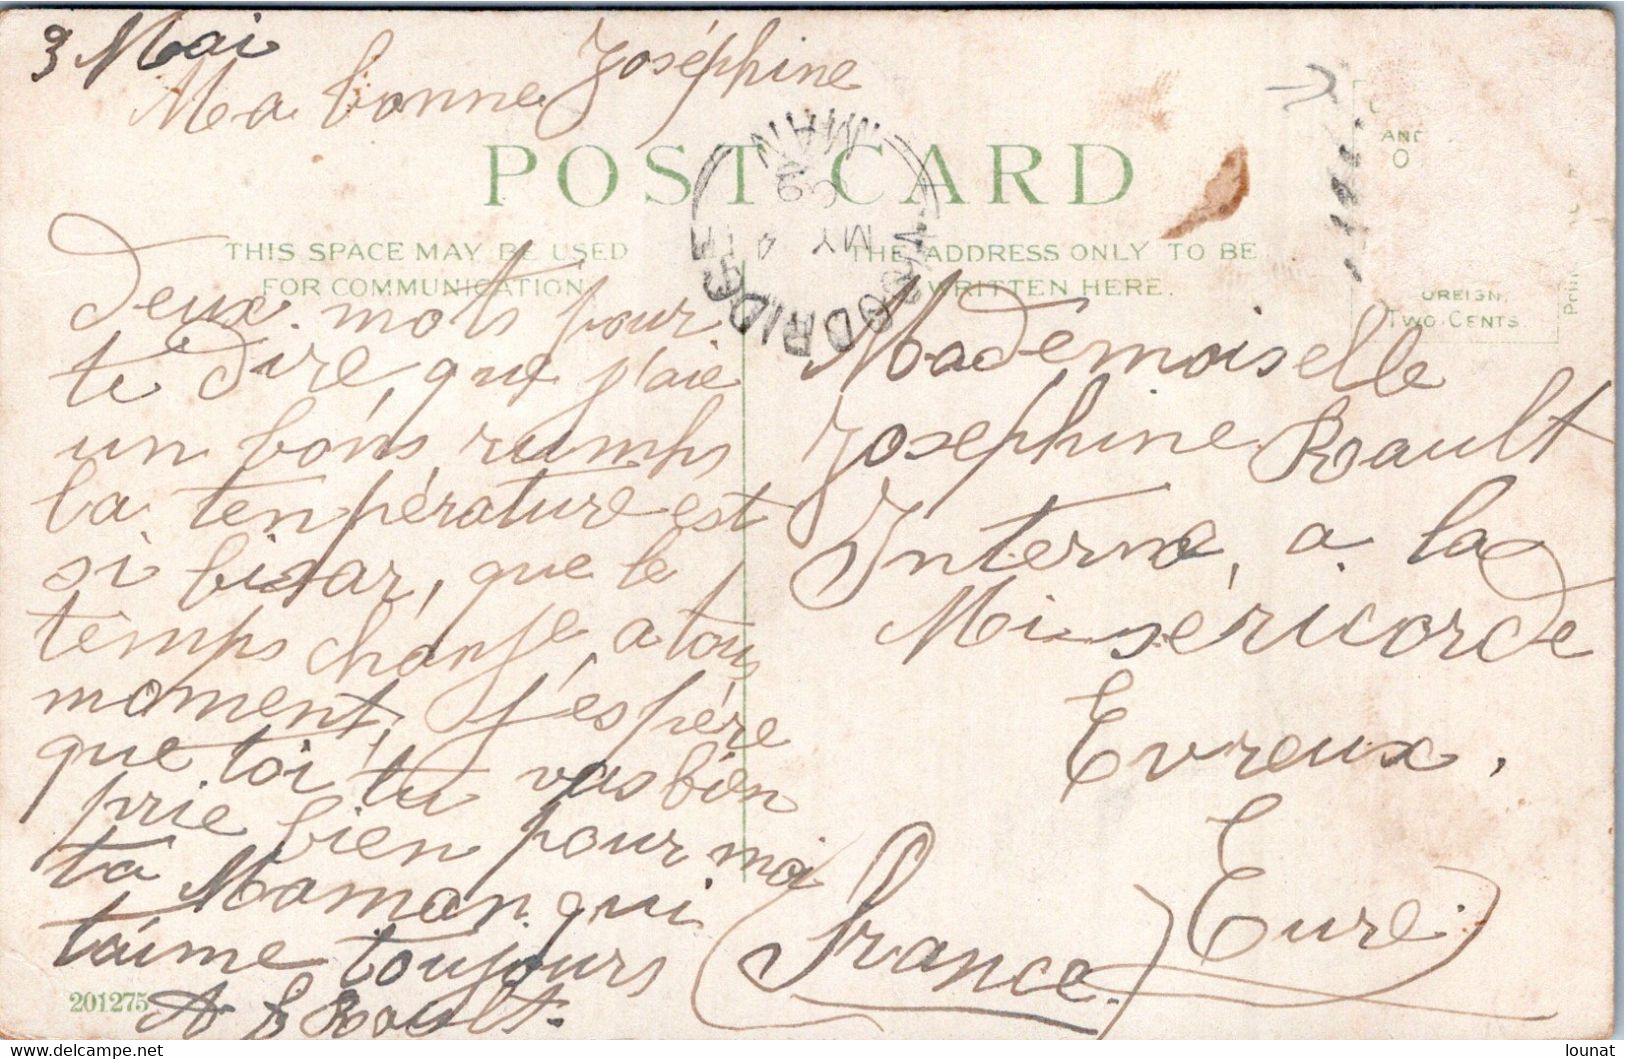 3 Mai
Ma bonne Joséphine
POST CARD
THIS SPACE MAY BE USED
FOR COMMUNICATION.
deux mots pour
te dire, que j'aie
un bons rumhs
la tenpérature est
si bisar, que le
temps change, a tous
moment, j'espére
que toi tu vas bien
prie bien pour moi
ta Maman qui
t'aime toujours
A B Rault.
201275
MAN
MY 4
ODRIDGE
THE ADDRESS ONLY TO BE
WRITTEN HERE.
AND
O
OREIGN,
TWO CENTS.
Mademoiselle
Josephine Rault
Interne, a la
Miséricorde
Evreux,
Eure
(France.)
www.delcampe.net
lounat